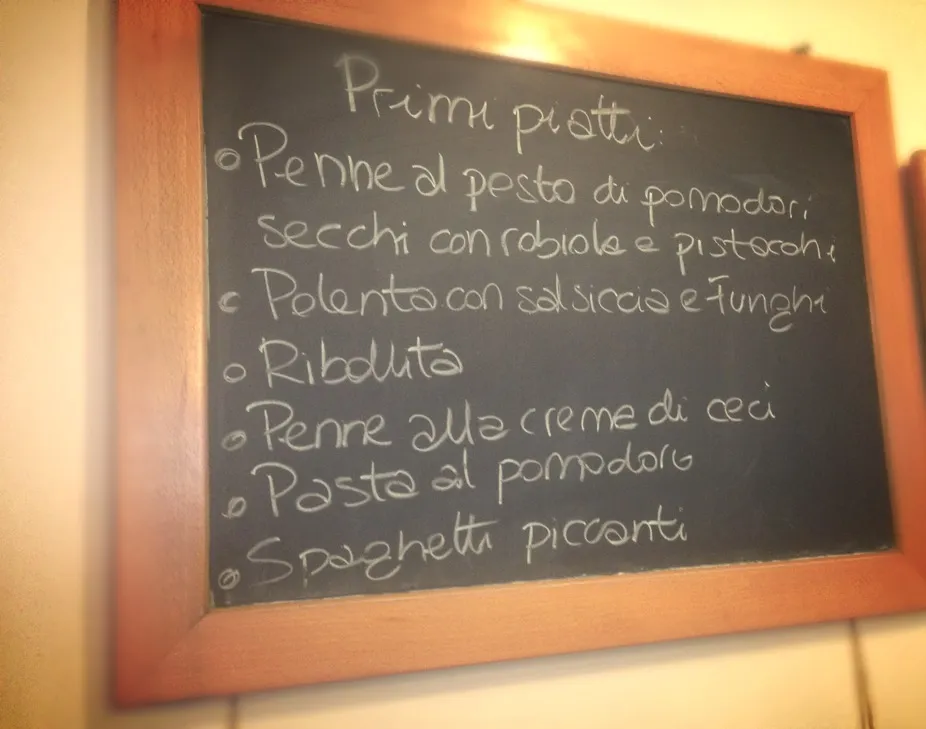 Primi piatti:
Penne al pesto di pomodori
secchi con robiola e pistacchi
Polenta con salsiccia e funghi
Ribollita
Penne alla crema di ceci
Pasta al pomodoro
Spaghetti piccanti